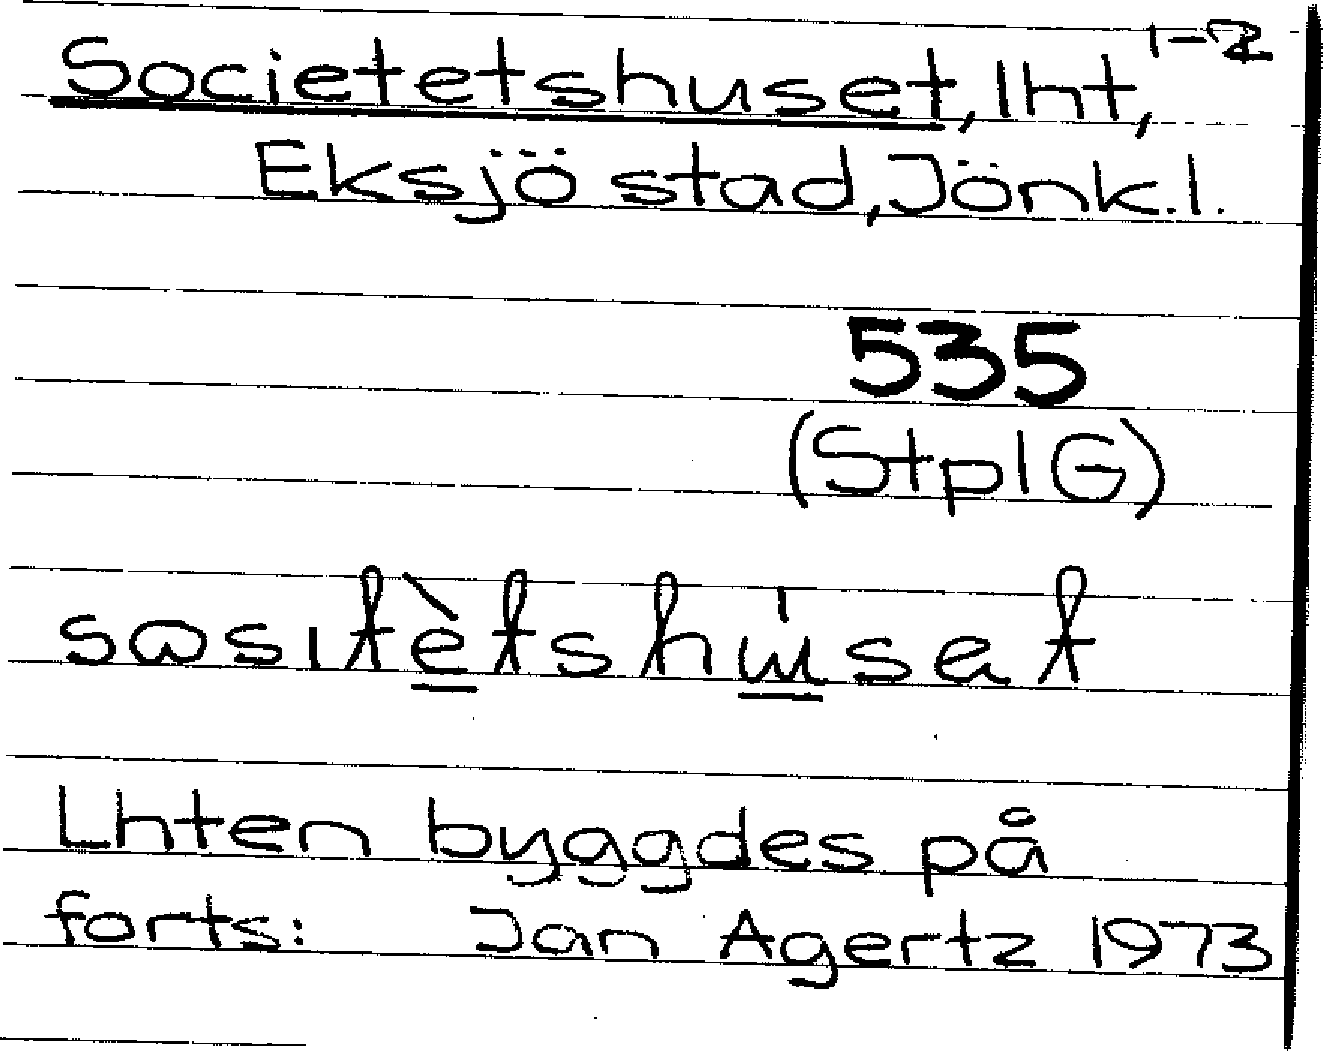 Societetshuset, lht, 1-2
Eksjö stad, Jönk.l.
535
(StplG)
sɷsıtètshu̇sat
Lhten byggdes på
forts: Jan Agertz 1973